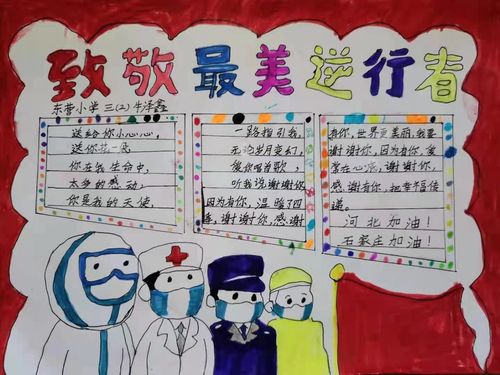 致敬最美逆行者
东营小学 三(2) 牛泽鑫
送给你小心心,
送你花一朵
你在我生命中,
太多的感动,
你是我的天使
一路指引我,
无论岁月变幻,
爱你唱首歌,
听我说谢谢你,
因为有你,温暖了四
季,谢谢你,感谢
有你,世界更美丽,我要
谢谢你,因为有你,爱
常在心底,谢谢你,
感谢有你,把幸福传
递。
河北加油!
石家庄加油!